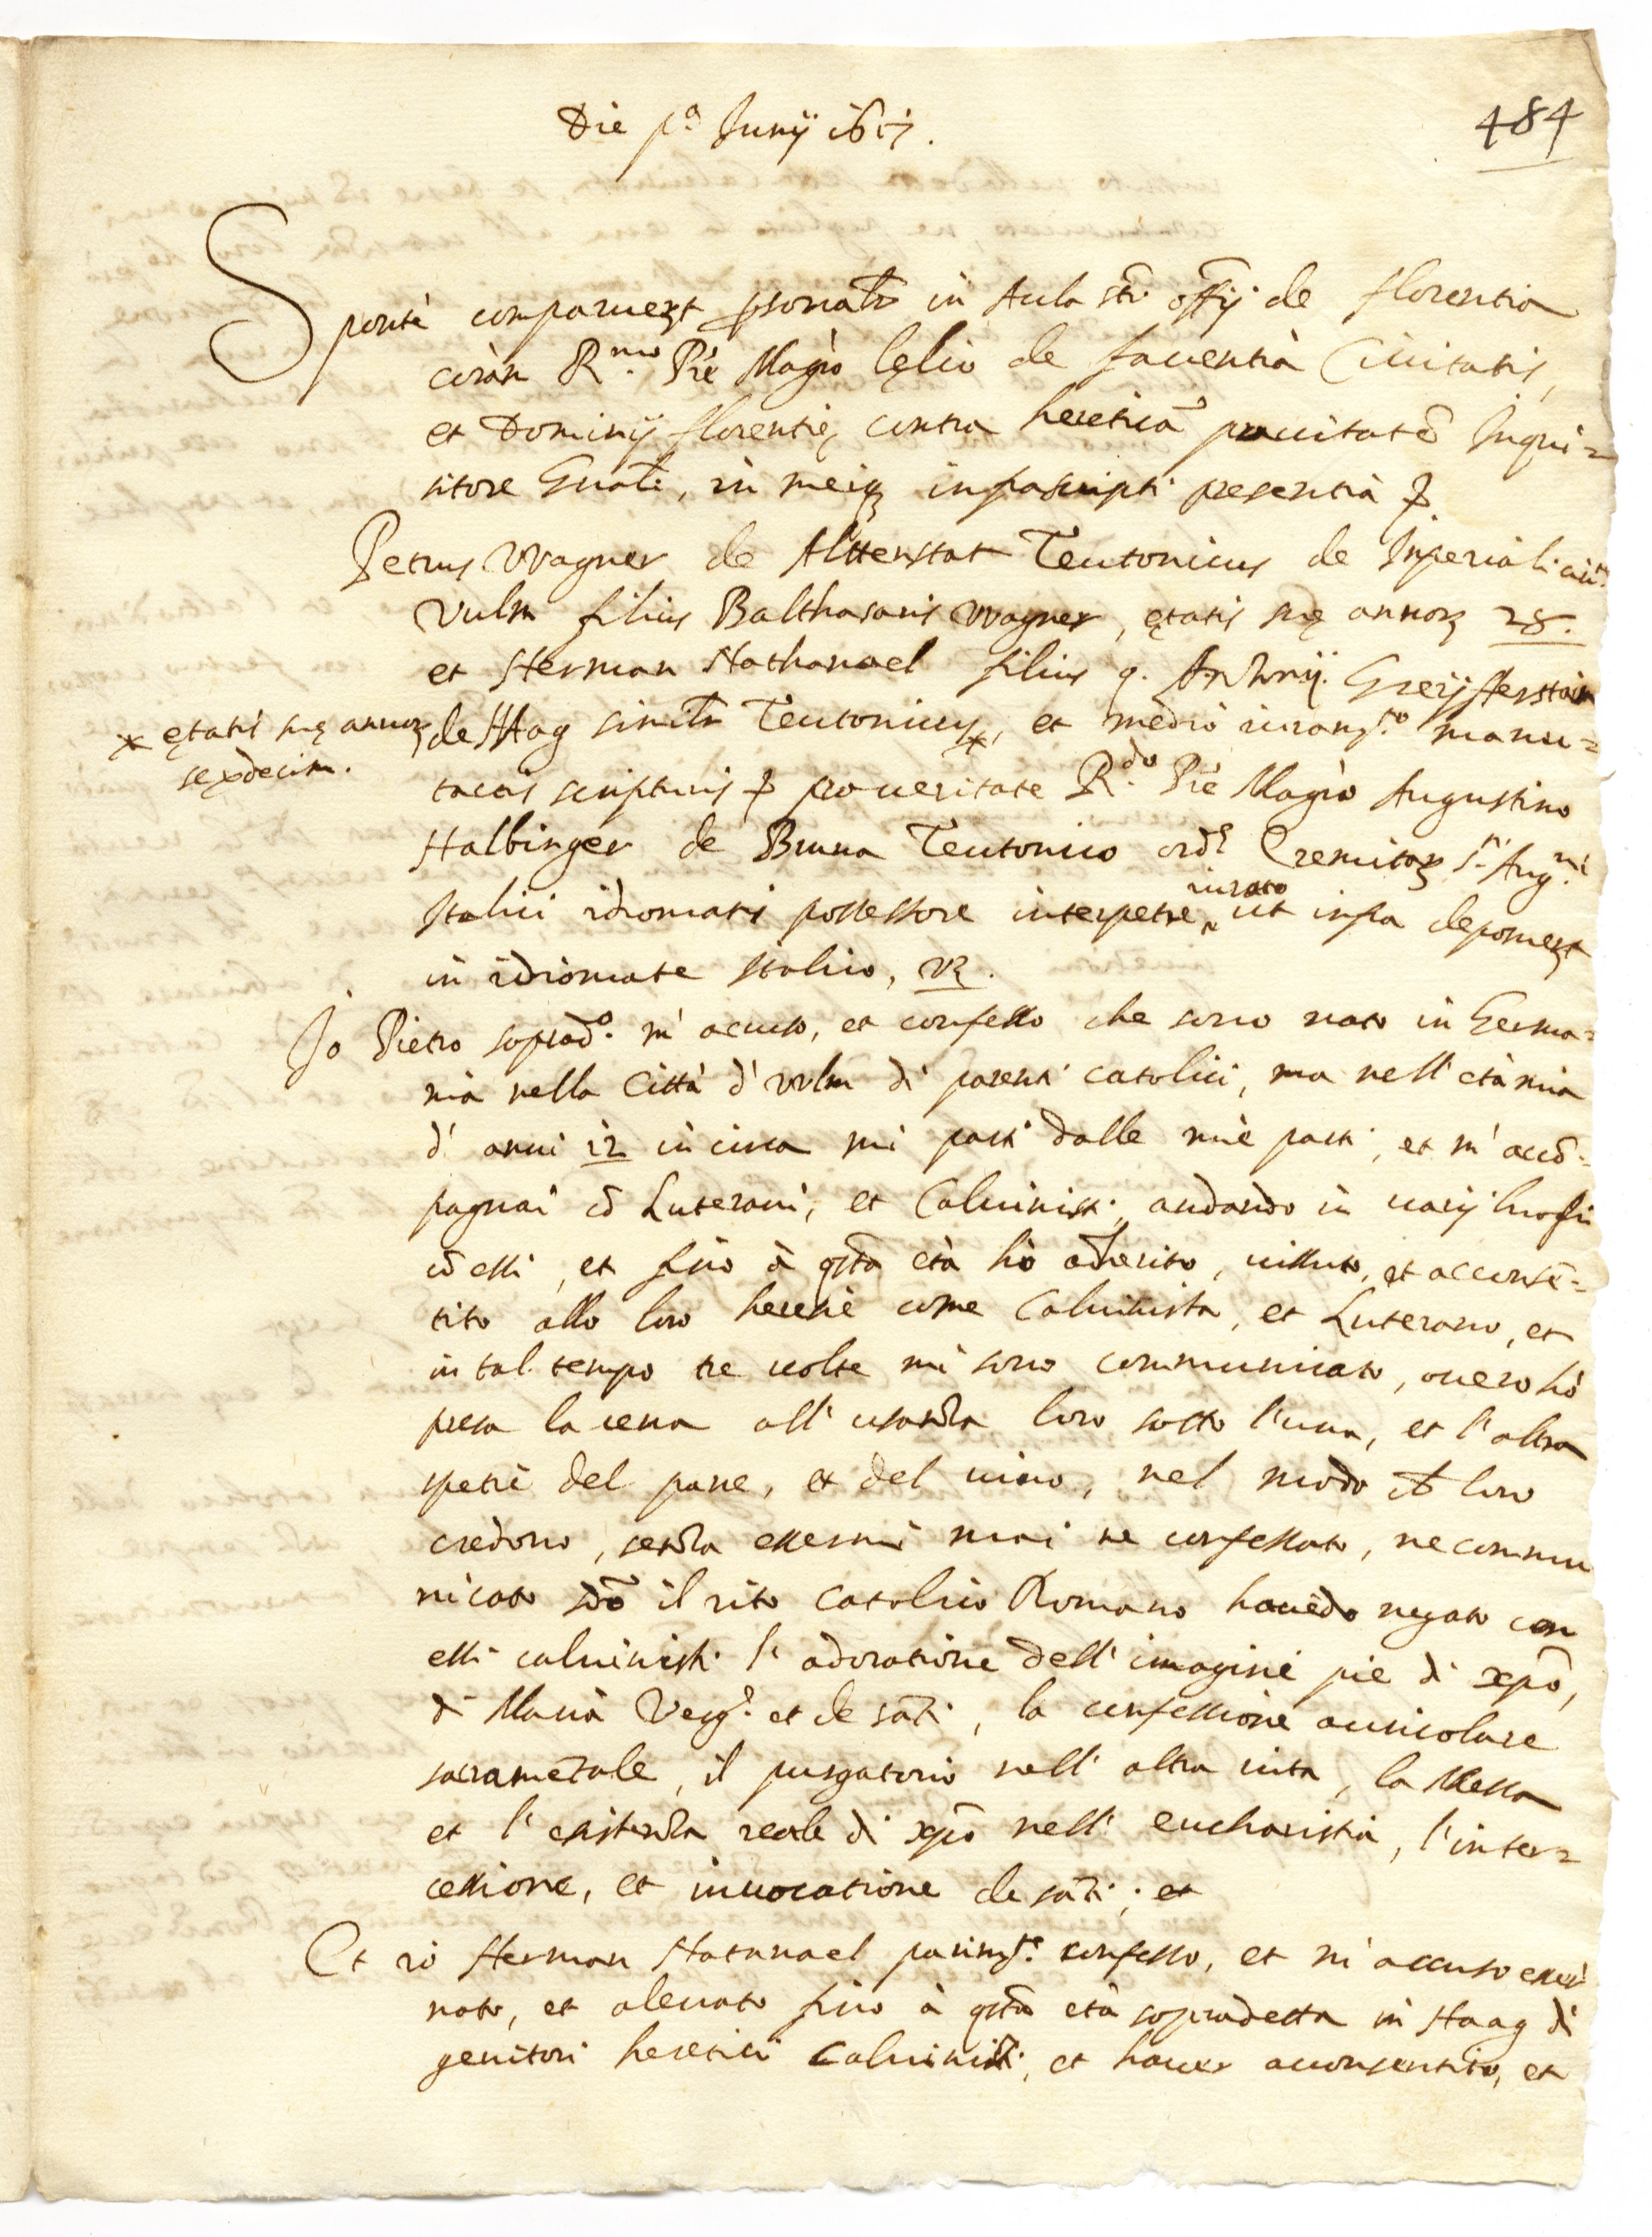 Die p.ª Junij 1617.
484
Sponte comparuerꝫt ꝑsonalr in Aula sti offij de florentia
corã R.mo Pre Magro Lęlio de faventia Civitatis,
et Dominij florentię contra hereticã pravitatẽ Inqui=
sitore Gnali, in meiqꝫ infrascripti presentia &
Petrus Wagner de Alttenstat Teutonicus de Imperiali ciũt.
Vulm filius Balthasaris Wagner, ętatis suę annorꝫ 28.
et Herman Nathanael filius q. Anthonij Greijffenstain
de Haag similr Teutonicus *, et medio iuramto manu=
* ętatis suę annorꝫ
sexdecim.
tactis scripturis & pro veritate R.do Pre Magro Augustino
Halbinger de Bruna Teutonico ordẽ Eremitorꝫ S.ti Aug.ni
Italici idiomatis possessore interpetre iurato ut infra deponerꝫt
in idiomate Italico, vꝫ.
Io Pietro soprad.o m'accuso, et confesso che sono nato in Germa=
nia nella Città d'Vulm di parenti catolici, ma nell'età mia
d'anni 12 in circa mi parti dalle mie parti, et m'accõ=
pagnai cõ Luterani, et Calvinisti, andando in varij luoghi
cõ essi, et fino à qsta età hò adherito, vissuto, et accõnsẽ=
tito alle loro heresie come Calvinista, et Luterano, et
in tal tempo tre volte mi sono communicato, overo hò
presa la cena all'usanza loro sotto l'una, et l'altra
spetie del pane, et del vino, nel modo ch loro
credono, senza essermi mai ne confessato, ne commu
nicato sdo il rito catolico Romano havẽdo negato con
essi calvinisti l'adoratione dell'imagini pie di xpo,
di Maria Verg.e et de sãti, la confessione auricolare
sacramẽtale, il purgatorio nell'altra vita, la Messa
et l'esistenza reale di xpo nell'eucharistia, l'inter=
cessione, et invocatione de sãti; et
Et io Herman Natanael parimte confesso, et m'accuso esser
nato, et alevato fino à qsta età sopradetta in Haag di
genitori heretici calvinisti, et haver acconsentito, et